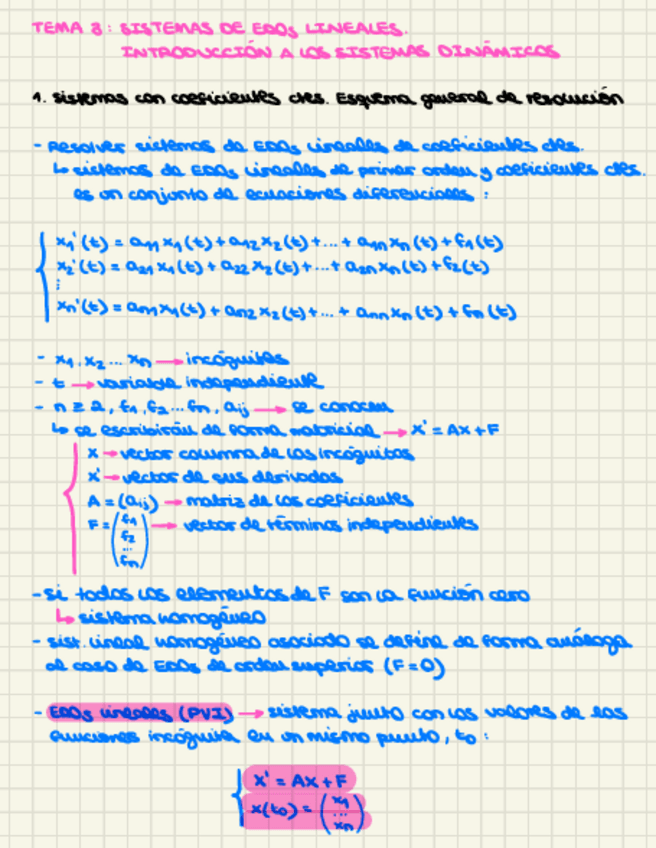 TEMA 3: SISTEMAS DE EDOs LINEALES.
INTRODUCCIÓN A LOS SISTEMAS DINÁMICOS
1. Sistemas con coeficientes ctes. Esquema general de resolución
- Resolver sistemas de EDOs lineales de coeficientes ctes.
↳ sistemas de EDOs lineales de primer orden y coeficientes ctes.
es un conjunto de ecuaciones diferenciales :
x₁'(t) = a₁₁x₁(t) + a₁₂x₂(t) + ... + a₁ₙxₙ(t) + f₁(t)
x₂'(t) = a₂₁x₁(t) + a₂₂x₂(t) + ... + a₂ₙxₙ(t) + f₂(t)
⋮
xₙ'(t) = aₙ₁x₁(t) + aₙ₂x₂(t) + ... + aₙₙxₙ(t) + fₙ(t)
- x₁, x₂ ... xₙ → incógnitas
- t → variable independiente
- n ≥ 2, f₁, f₂ ... fₙ, aᵢⱼ → se conocen
↳ se escribirán de forma matricial → X' = AX + F
X → vector columna de las incógnitas
X' → vector de sus derivadas
A = (aᵢⱼ) → matriz de los coeficientes
F = (f₁ f₂ ... fₙ) → vector de términos independientes
- si todos los elementos de F son la función cero
↳ sistema homogéneo
- sist. lineal homogéneo asociado se define de forma análoga
al caso de EDOs de orden superior (F = 0)
- EDOs lineales (PVI) → sistema junto con los valores de las
funciones incógnita en un mismo punto, t₀ :
X' = AX + F
X(t₀) = (x₁ ... xₙ)